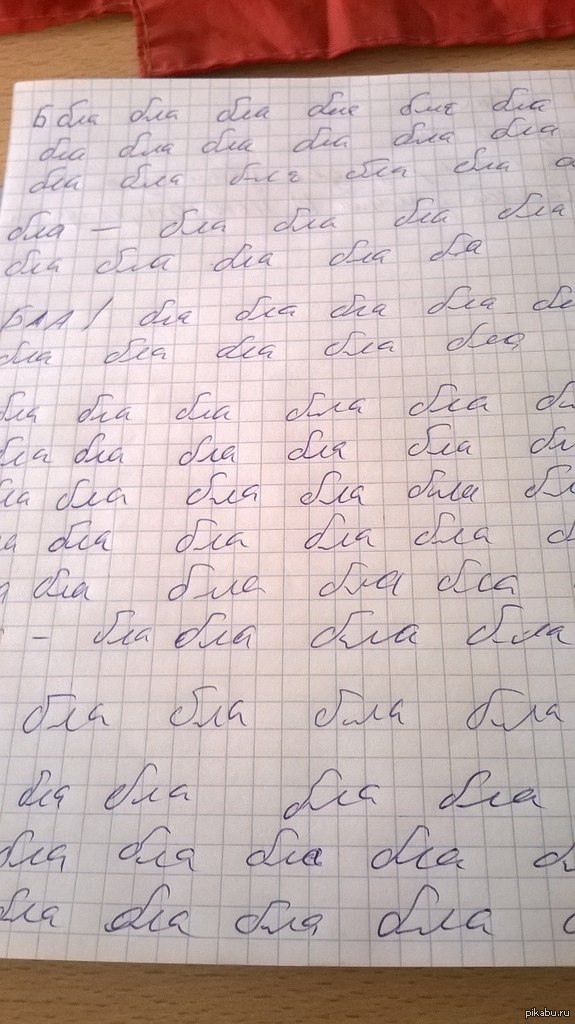 Б бла бла бла бла бла бла
бла бла бла бла бла бла
бла бла бла бла бла
бла — бла бла бла бла
бла бла бла бла ба
БЛА / бла бла бла бла
бла бла бла бла бла
бла бла бла бла бла
бла бла бла бла бла
бла бла бла бла бла
бла бла бла бла
бла бла бла бла
— бла бла бла бла
бла бла бла бла
бла бла бла бла
бла бла бла бла
бла бла бла бла
pikabu.ru